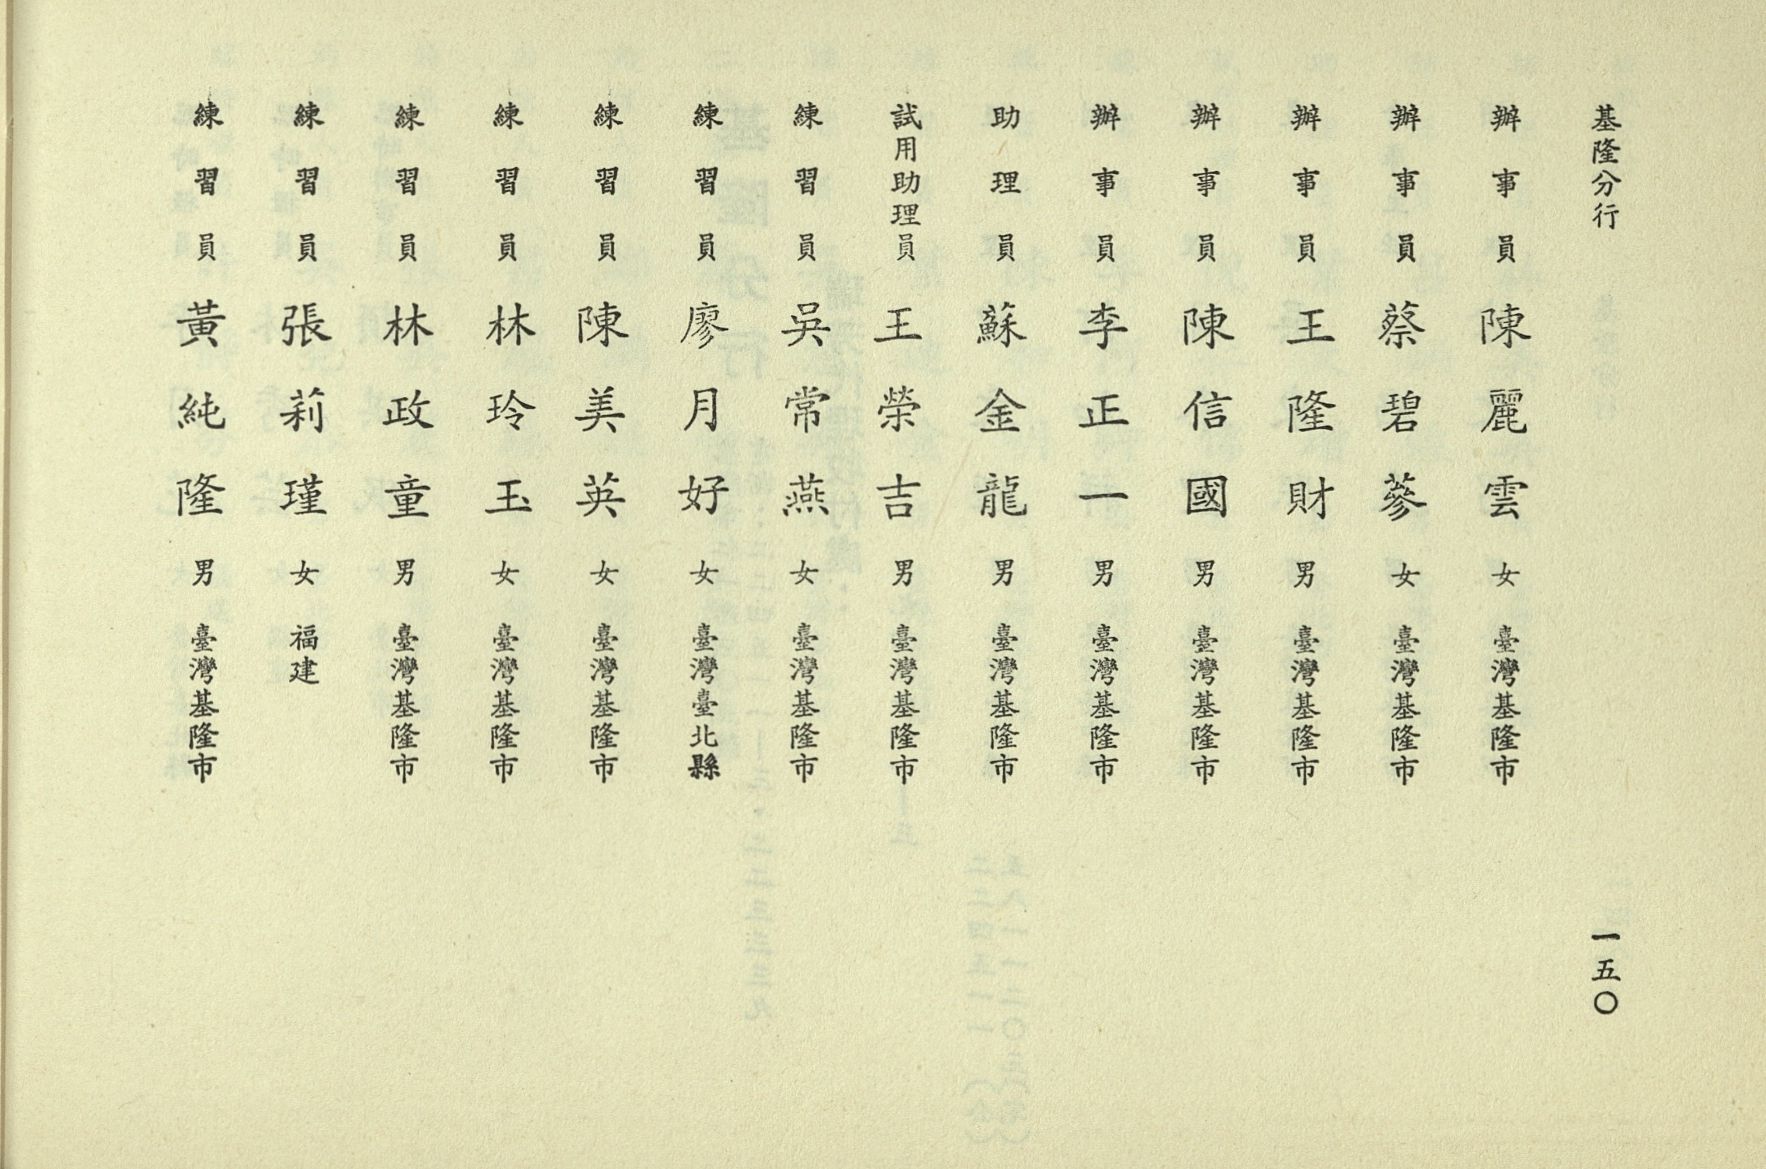 基隆分行 一五〇
辦事員 陳麗雲 女 臺灣基隆市
辦事員 蔡碧蔘 女 臺灣基隆市
辦事員 王隆財 男 臺灣基隆市
辦事員 陳信國 男 臺灣基隆市
辦事員 李正一 男 臺灣基隆市
助理員 蘇金龍 男 臺灣基隆市
試用助理員 王榮吉 男 臺灣基隆市
練習員 吳常燕 女 臺灣基隆市
練習員 廖月好 女 臺灣臺北縣
練習員 陳美英 女 臺灣基隆市
練習員 林玲玉 女 臺灣基隆市
練習員 林政童 男 臺灣基隆市
練習員 張莉瑾 女 福建
練習員 黃純隆 男 臺灣基隆市